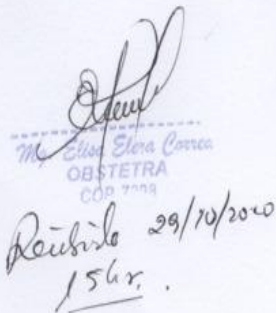 Elisa Elera Correa
OBSTETRA
COP
Recibido 29/10/2020
15 hr.